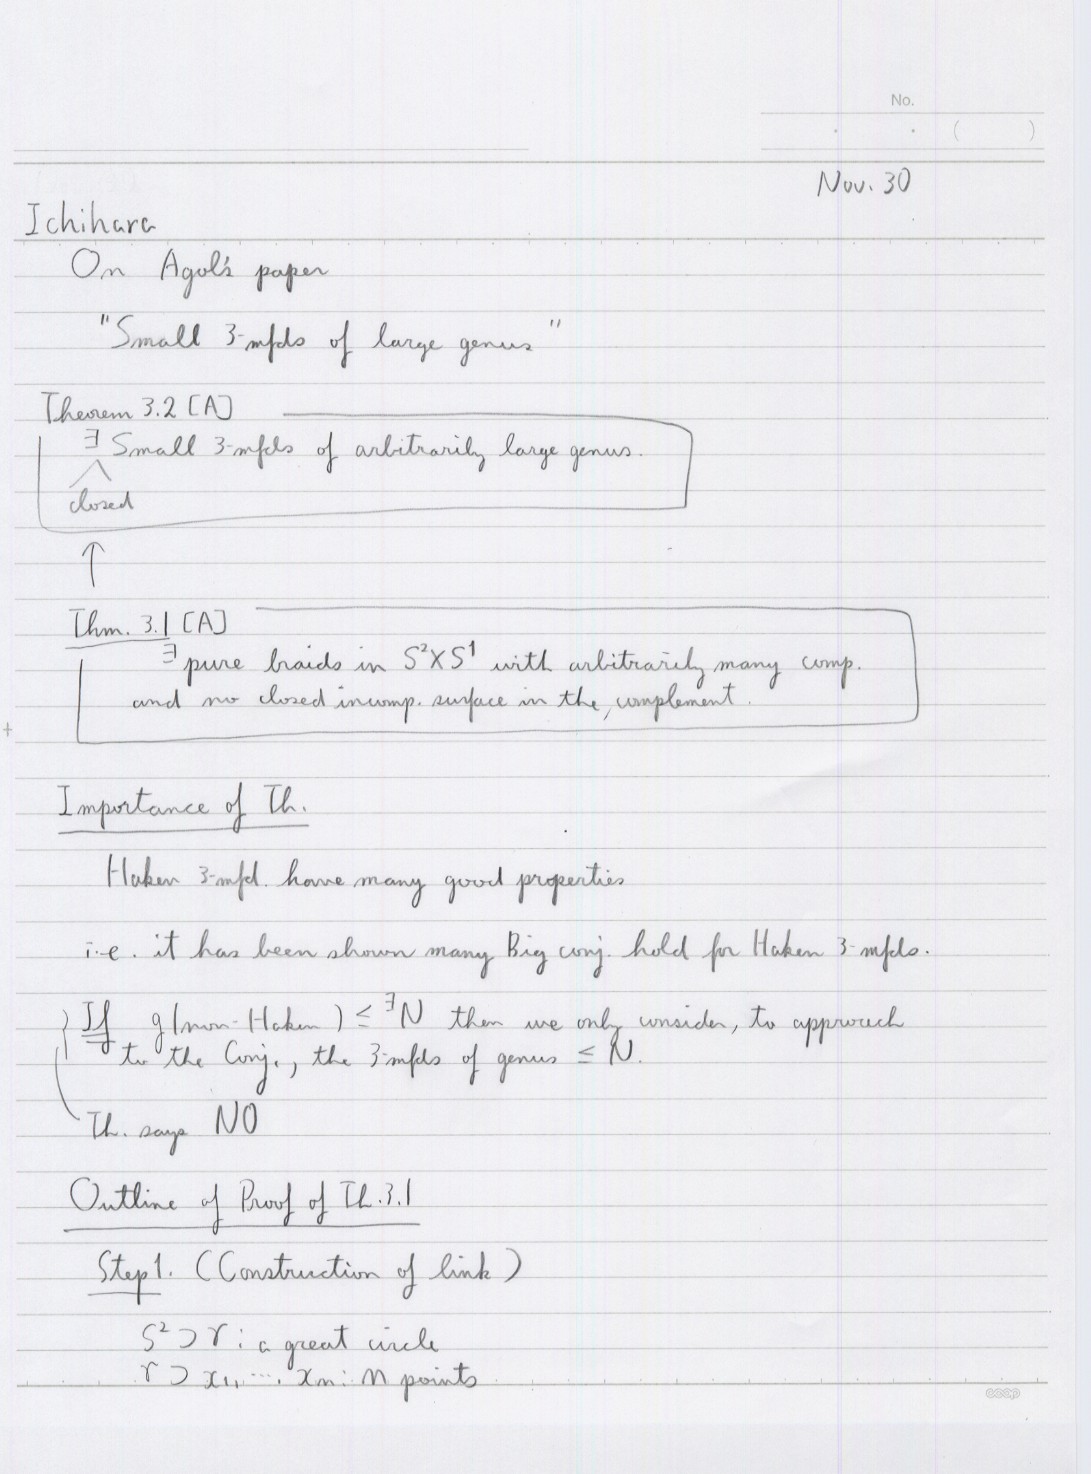 No.
( )
Nov. 30
Ichihara
On Agol's paper
"Small 3-mfds of large genus"
Theorem 3.2 [A]
∃ Small 3-mfds of arbitrarily large genus.
closed
↑
Thm. 3.1 [A]
∃ pure braids in S²×S¹ with arbitrarily many comp.
and no closed incomp. surface in the, complement.
Importance of Th.
Haken 3-mfd. have many good properties
i.e. it has been shown many Big conj. hold for Haken 3-mfds.
If g(non-Haken) ≤ ∃N then we only consider, to approach
to the Conj., the 3-mfds of genus ≤ N.
Th. says NO
Outline of Proof of Th.3.1
Step1. (Construction of link)
S² ⊃ γ : a great circle
γ ⊃ x₁, ⋯, xₙ : n points
coop